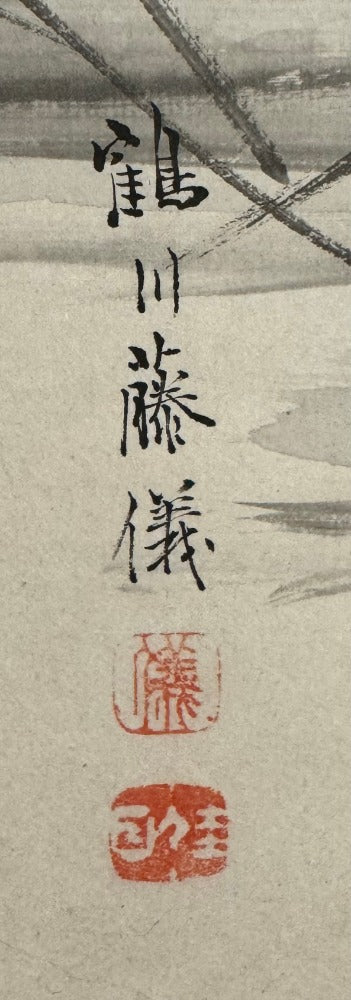 鶴川藤儀
儀